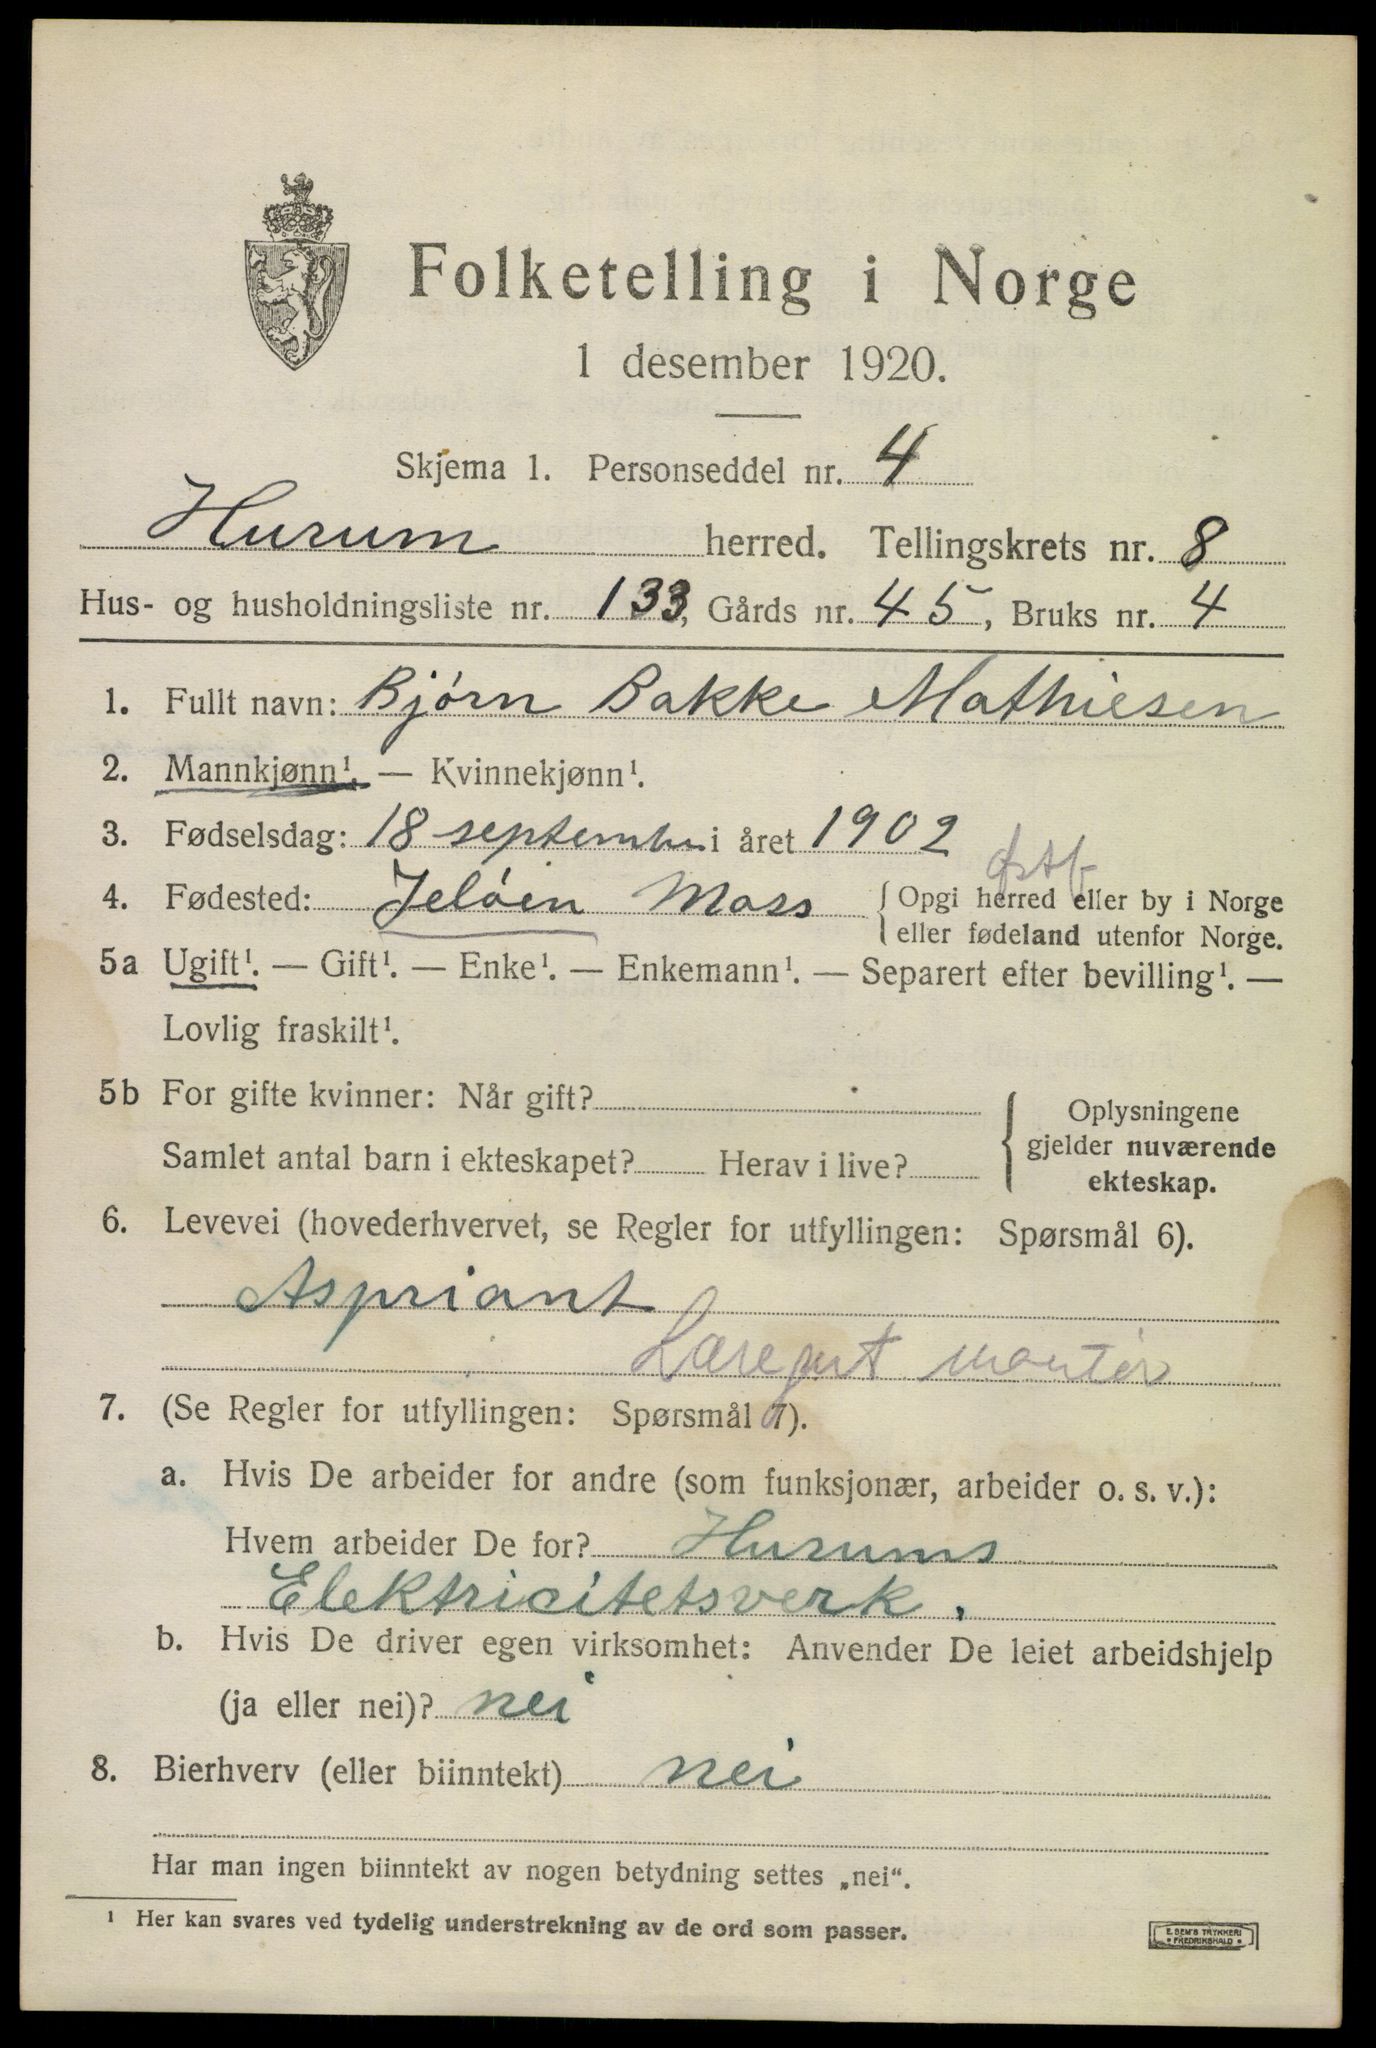 Folketelling i Norge
1 desember 1920.
Skjema 1. Personseddel nr. 4
Hurum herred. Tellingskrets nr. 8
Hus- og husholdningsliste nr. 133, Gårds nr. 45, Bruks nr. 4
1. Fullt navn: Bjørn Bakke Mathiesen
2. Mannkjønn¹. — Kvinnekjønn¹.
3. Fødselsdag: 18 septembr i året 1902
Østf
4. Fødested: Jeløen Moss { Opgi herred eller by i Norge
eller fødeland utenfor Norge.
5a Ugift¹. — Gift¹. — Enke¹. — Enkemann¹. — Separert efter bevilling¹. —
Lovlig fraskilt¹.
5b For gifte kvinner: Når gift?
Samlet antal barn i ekteskapet? Herav i live?
{ Oplysningene
gjelder nuværende
ekteskap.
6. Levevei (hovederhvervet, se Regler for utfyllingen: Spørsmål 6).
Aspriant
Læregut montör
7. (Se Regler for utfyllingen: Spørsmål 7).
a. Hvis De arbeider for andre (som funksjonær, arbeider o. s. v.):
Hvem arbeider De for? Hurums
Elektricitetsverk.
b. Hvis De driver egen virksomhet: Anvender De leiet arbeidshjelp
(ja eller nei)? nei
8. Bierhverv (eller biinntekt) nei
Har man ingen biinntekt av nogen betydning settes „nei“.
¹ Her kan svares ved tydelig understrekning av de ord som passer.
E. SEM'S TRYKKERI
• FREDRIKSHALD •